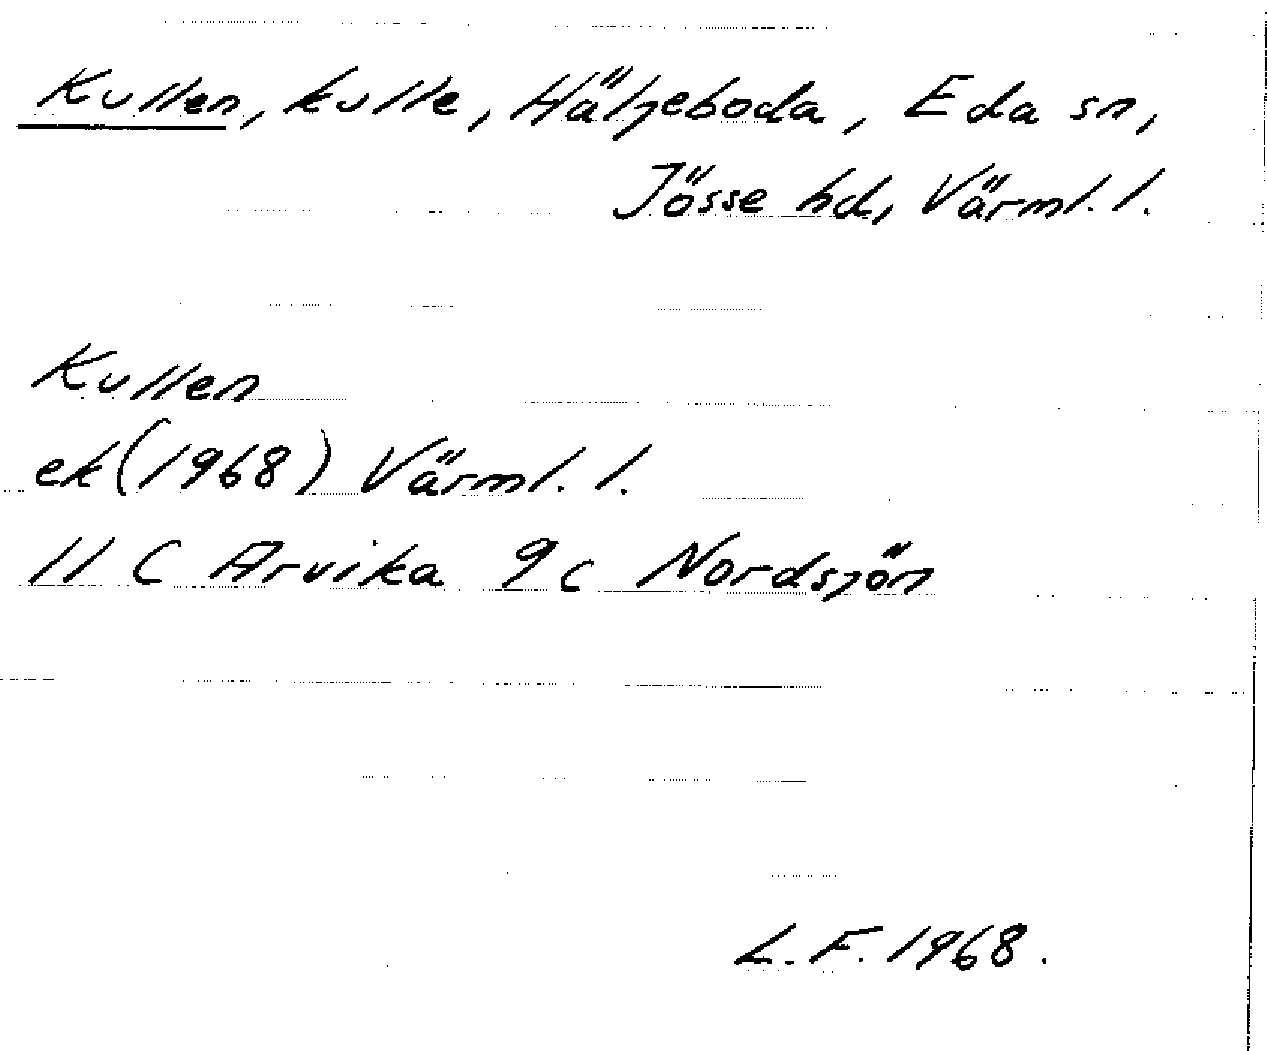 Kullen, kulle, Häljeboda, Eda sn,
Jösse hd, Värml. l.
Kullen
ek (1968) Värml. l.
11 C Arvika 9c Nordsjön
L.F. 1968.